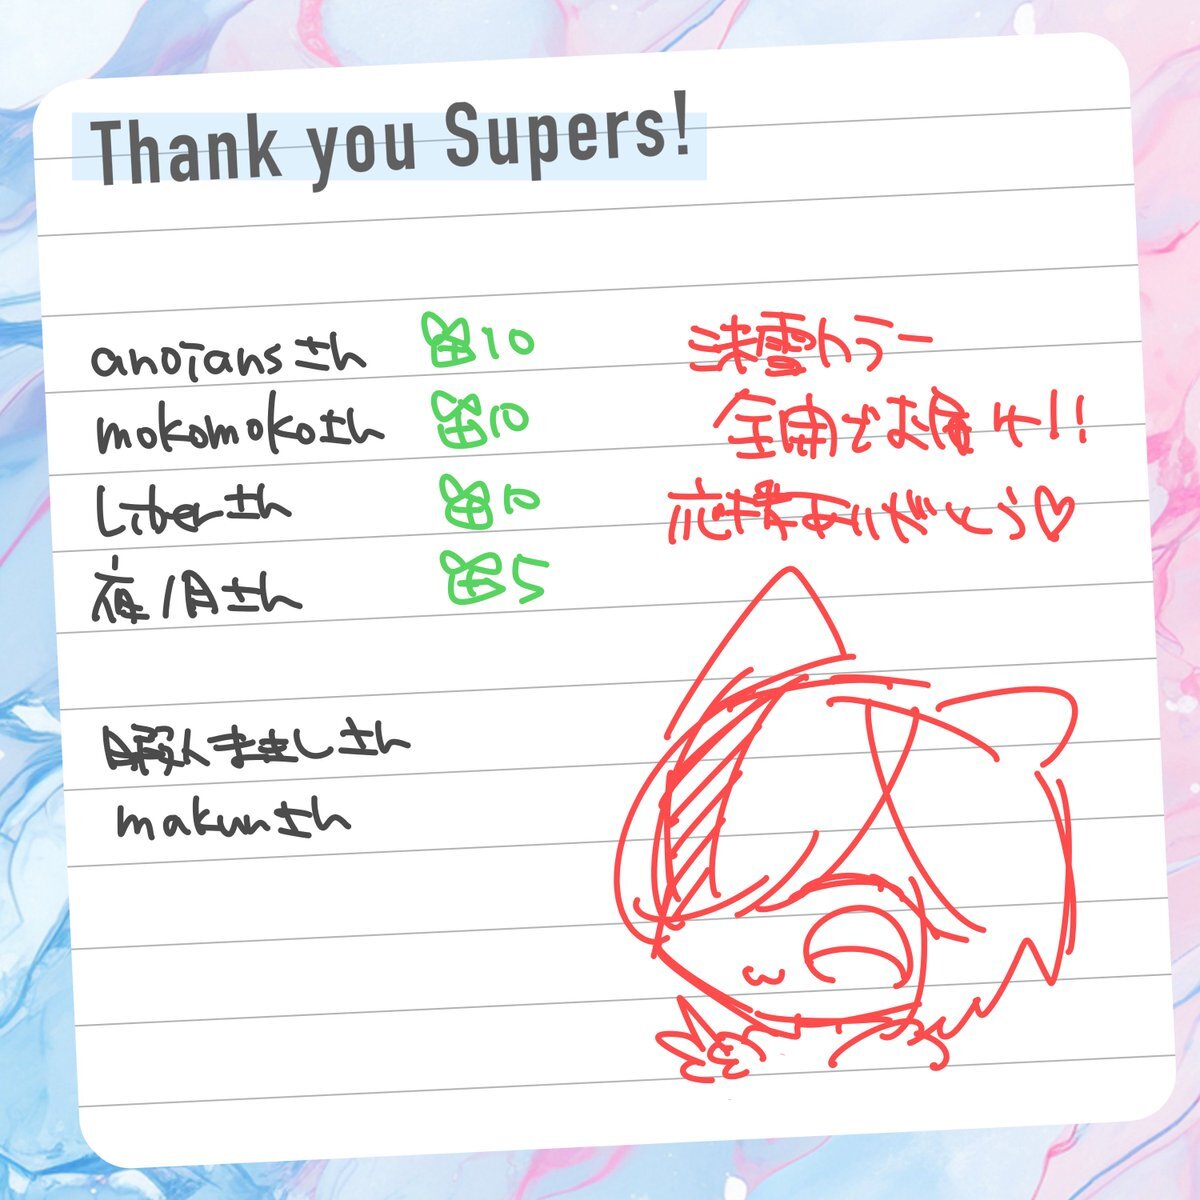 Thank you Supers!
anoTansさん 10
mokomokoさん 10
Liberさん 10
夜ノ月さん 5
暇人まましさん
makunさん
深雪カラー
全開でお届け!!
応援ありがとう♡